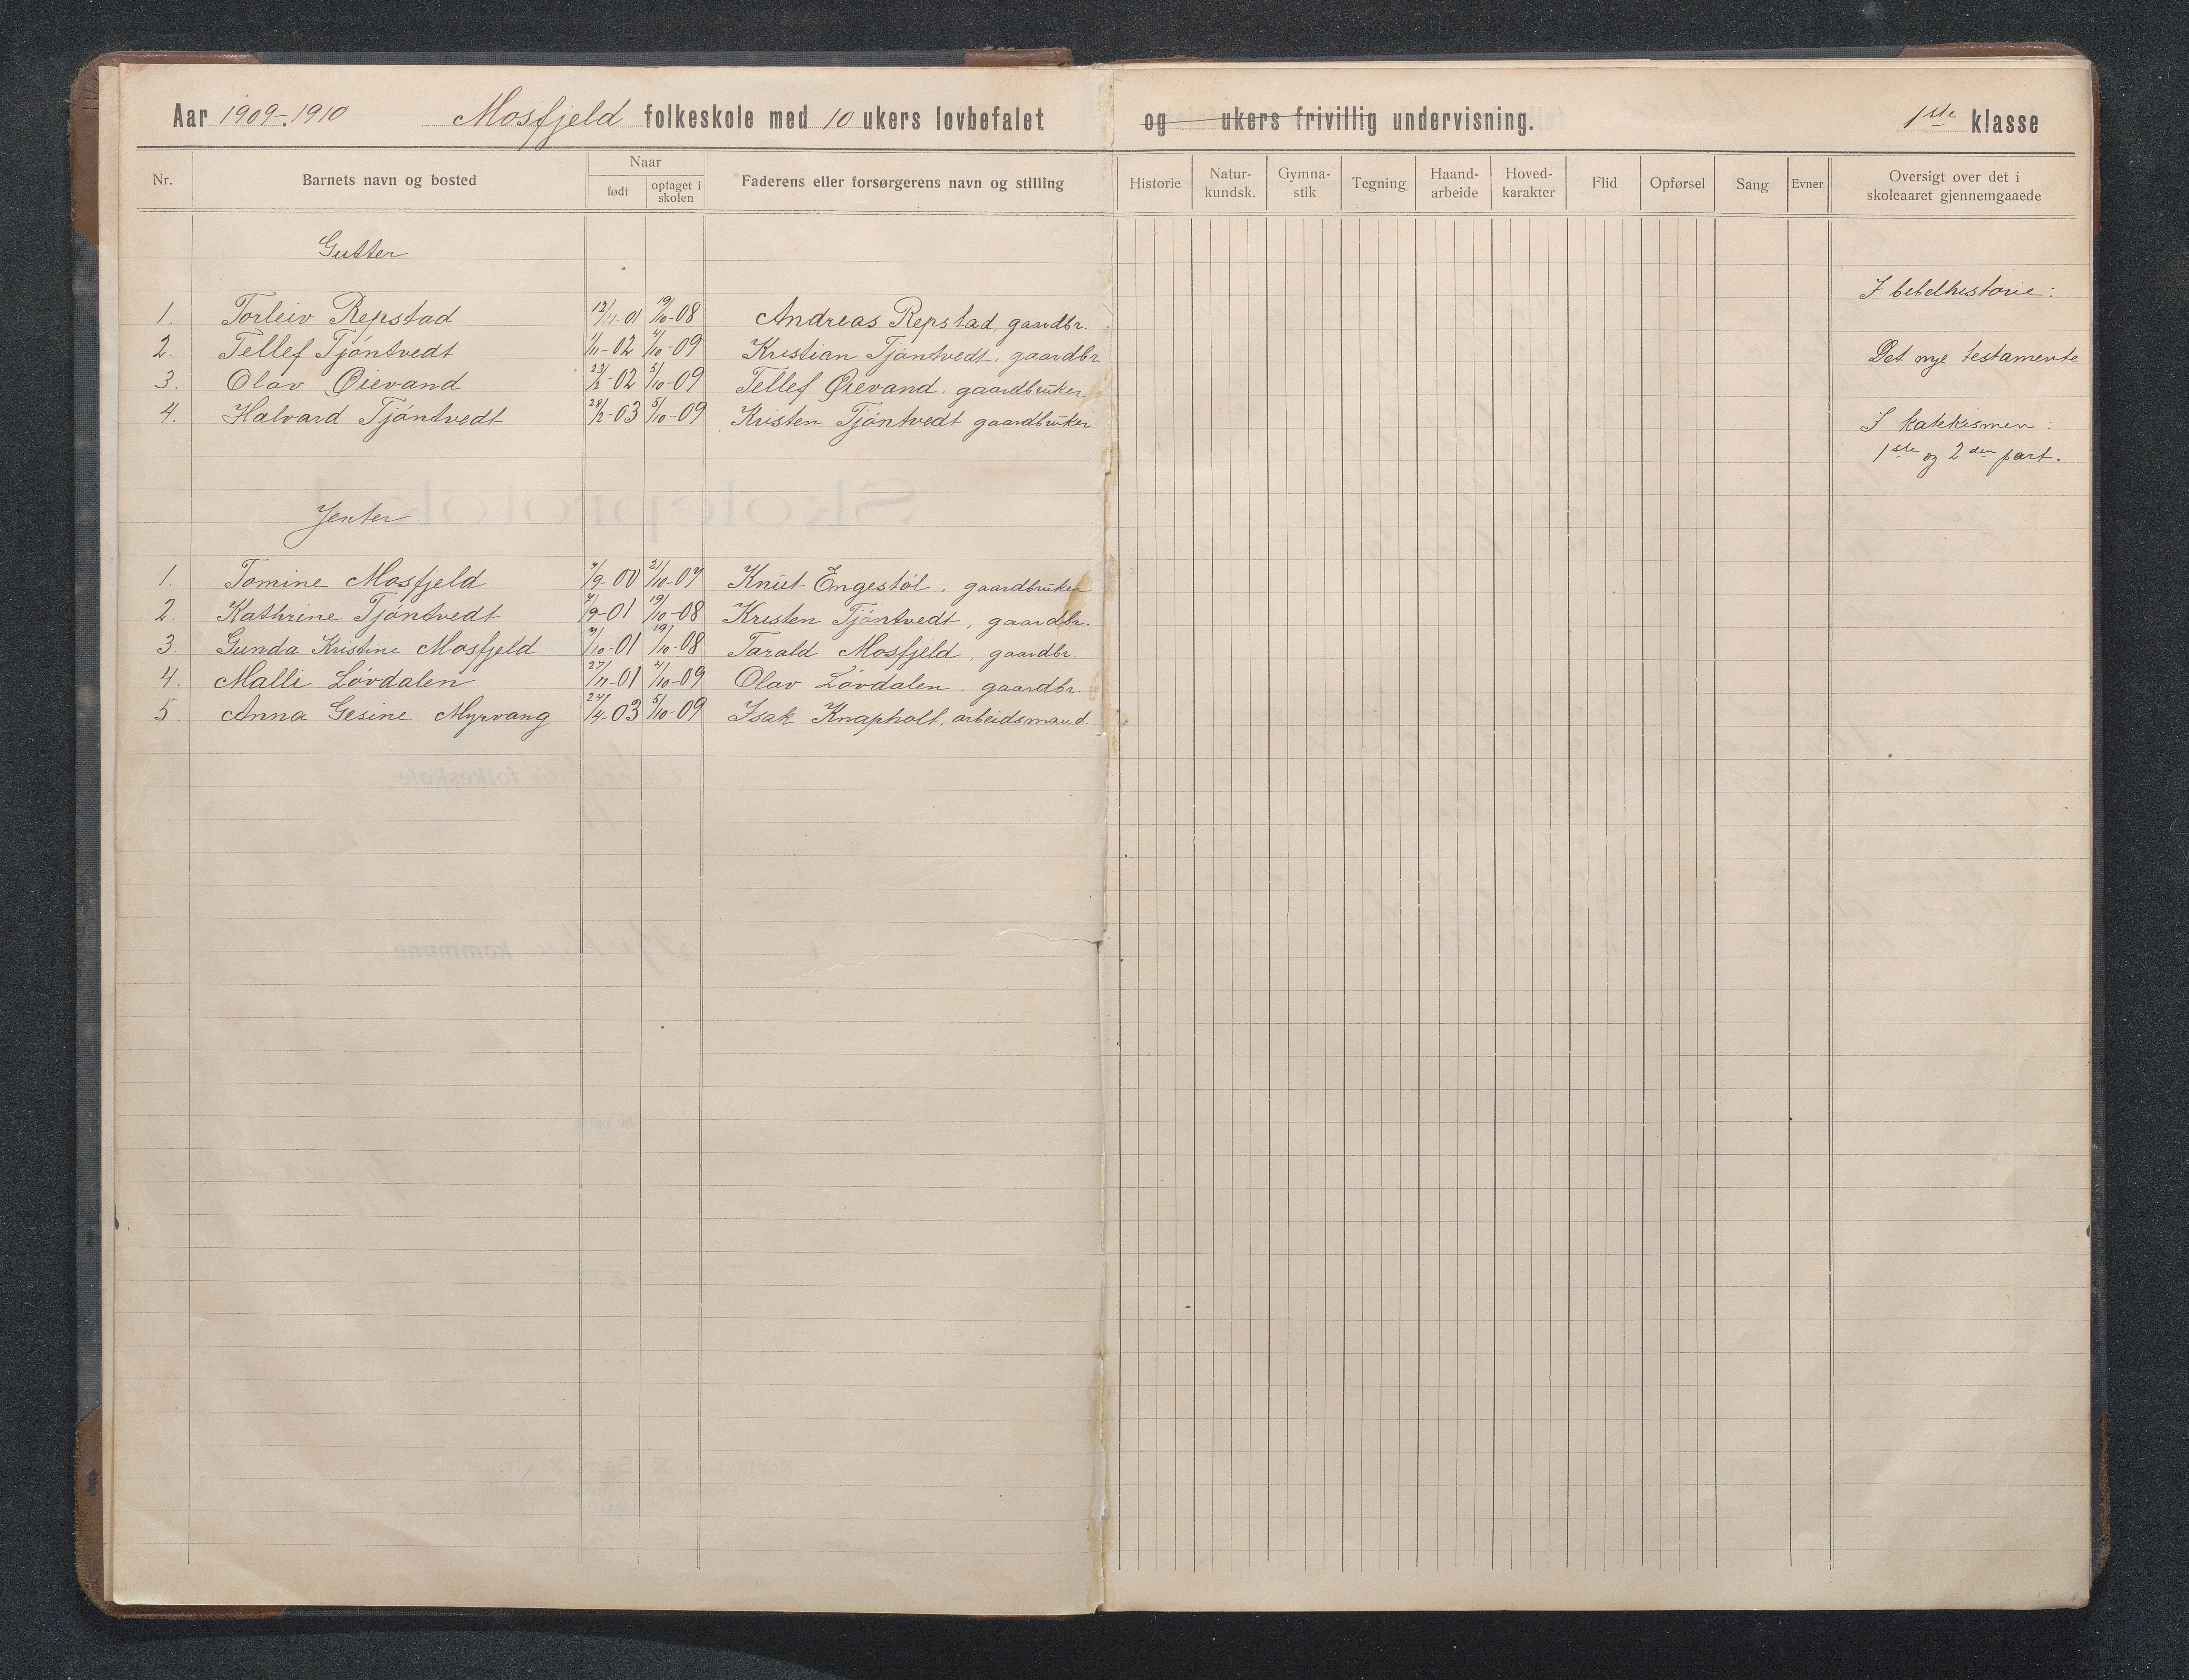 Aar 1909-1910 Mosfjeld folkeskole med 10 ukers lovbefalet og ukers frivillig undervisning. 1ste klasse
Nr. Barnets navn og bosted Naar født optaget i skolen Faderens eller forsørgerens navn og stilling Historie Natur-kundsk. Gymna-stik Tegning Haand-arbeide Hoved-karakter Flid Opførsel Sang Evner Oversigt over det i skoleaaret gjennemgaaede
Gutter
I bibelhistorie:
1. Torleiv Repstad 12/11-01 19/10-08 Andreas Repstad, gaardbr.
2. Tellef Tjöntvedt 1/11-02 4/10-09 Kristian Tjöntvedt, gaardbr Det nye testamente
3. Olav Øievand 5/10-09 Tellef Øievand. gaardbruker
4. Halvard Tjöntvedt 28/2-03 5/10-09 Kristen Tjöntvedt gaardbruker I katekismen:
1ste og 2den part.
Jenter.
1. Tomine Mosfjeld 7/9-00 21/10-07 Knut Engestöl. gaardbruker
2. Kathrine Tjöntvedt 19/10-08 Kristen Tjöntvedt, gaardbr.
3. Gunda Kristine Mosfjeld 7/10-01 19/10-08 Tarald Mosfjeld, gaardbr.
4. Malli Lövdalen 27/11-01 4/10-09 Olav Lövdalen. gaardbr.
5. Anna Gesine Myrvang 24/4-03 5/10-09 Isak Knapholt, arbeidsmand.
Skoleprotokol
folkeskole
i kommune